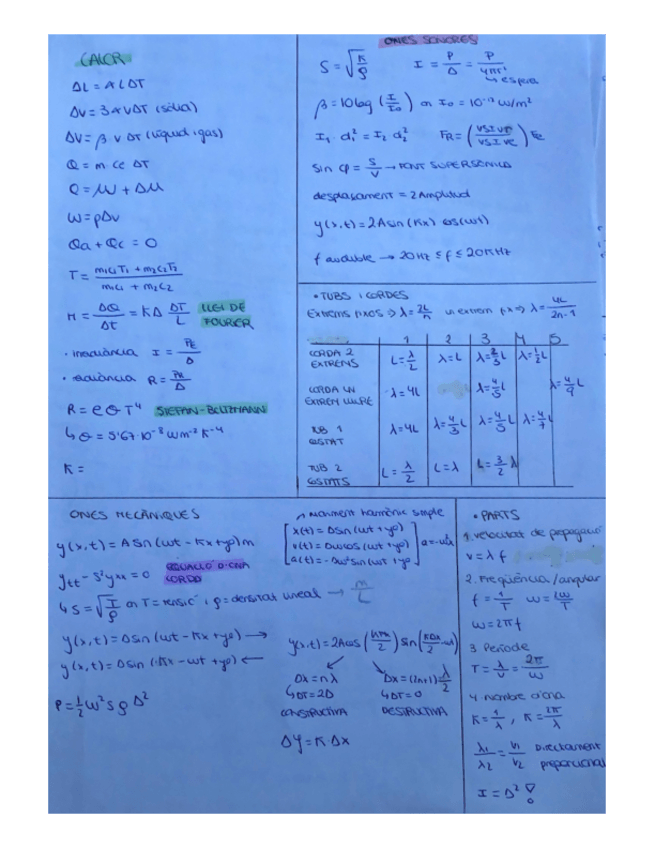 CALOR
ΔL = α L ΔT
ΔV = 3 α V ΔT (sòlid)
ΔV = β V ΔT (líquid i gas)
Q = m · ce ΔT
Q = W + ΔU
W = pΔv
Qa + Qc = 0
T = (m1c1T1 + m2c2T2) / (m1c1 + m2c2)
H = ΔQ/Δt = KA ΔT/L LLEI DE FOURIER
R = eσT⁴ STEFAN-BOLTZMANN
↳ σ = 5'67·10⁻⁸ W m⁻² K⁻⁴
K =
ONES SONORES
S = √(K/ρ) I = P/A = P/4πr²
↳ esfera
β = 10 log (I/I₀) on I₀ = 10⁻¹² W/m²
I₁ · d₁² = I₂ d₂²
sin φ = S/V → FONT SUPERSÒNICA
desplaçament = 2 Amplitud
y(x,t) = 2A sin(Kx) cos(wt)
f audible → 20 Hz ≤ f ≤ 20 KHz
• TUBS I CORDES
EXTREMS FIXOS => λ = 2L/n un extrem fix => λ = 4L/2n-1
1 2 3 4 5
CORDA 2 EXTREMS L = λ/2 λ = L λ = 2/3 L λ = 1/2 L
CORDA UN EXTREM LLIURE λ = 4L λ = 4/5 L λ = 4/9 L
TUB 1 COSTAT λ = 4L λ = 4/3 L λ = 4/5 L λ = 4/7 L
TUB 2 COSTATS L = λ/2 L = λ L = 3/2 λ
ONES MECÀNIQUES
y(x,t) = A sin (wt - Kx + φ₀) m
ytt - s² yxx = 0 EQUACIÓ D'ONA CORDA
↳ S = √(T/ρ) on T = tensió i ρ = densitat lineal → m/L
y(x,t) = A sin (wt - Kx + φ₀) →
y(x,t) = A sin (-Kx - wt + φ₀) ←
P = 1/2 w² s ρ A²
moviment harmònic simple
x(t) = A sin (wt + φ₀)
v(t) = A w cos (wt + φ₀)
a(t) = -A w² sin (wt + φ₀)
a = -w²x
Δx = nλ Δx = (2n+1) λ/2
↳ AT = 2A ↳ AT = 0
CONSTRUCTIVA DESTRUCTIVA
Δφ = K · Δx
• PARTS
1. velocitat de propagació
v = λ f
2. Freqüència / angular
f = 1/T
w = 2πf
3 Període
T = λ/v = 2π/w
4. nombre d'ona
K = 1/λ , K = 2π/λ
λ₁/λ₂ = V₁/V₂ Directament proporcional
I = A²